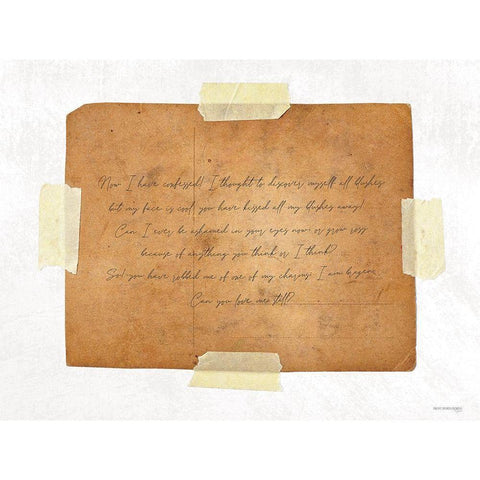 Now I have confessed! I thought to discover myself all blushes
but my face is cool, you have kissed all my blushes away!
Can I ever be ashamed in your eyes now, or grow rosy
because of anything you think or I think?
So! you have robbed me of one of my charms. I am brazen.
Can you love me still?